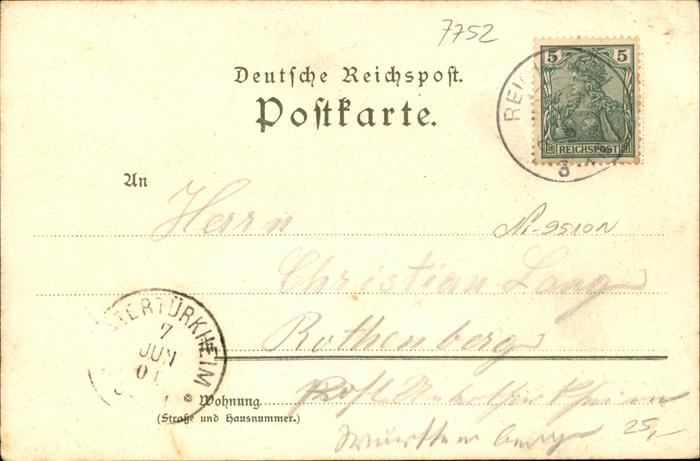 7752
5 5
REICHSPOST
REI
3
Deutsche Reichspost.
Postkarte.
An
Herrn
Ni-9510N
Christian Lang
Rothenberg
UNTERTÜRKHEIM
7
JUN
01
Wohnung
(Straße und Hausnummer.)
Post Untertürkheim
Württemberg
25,-